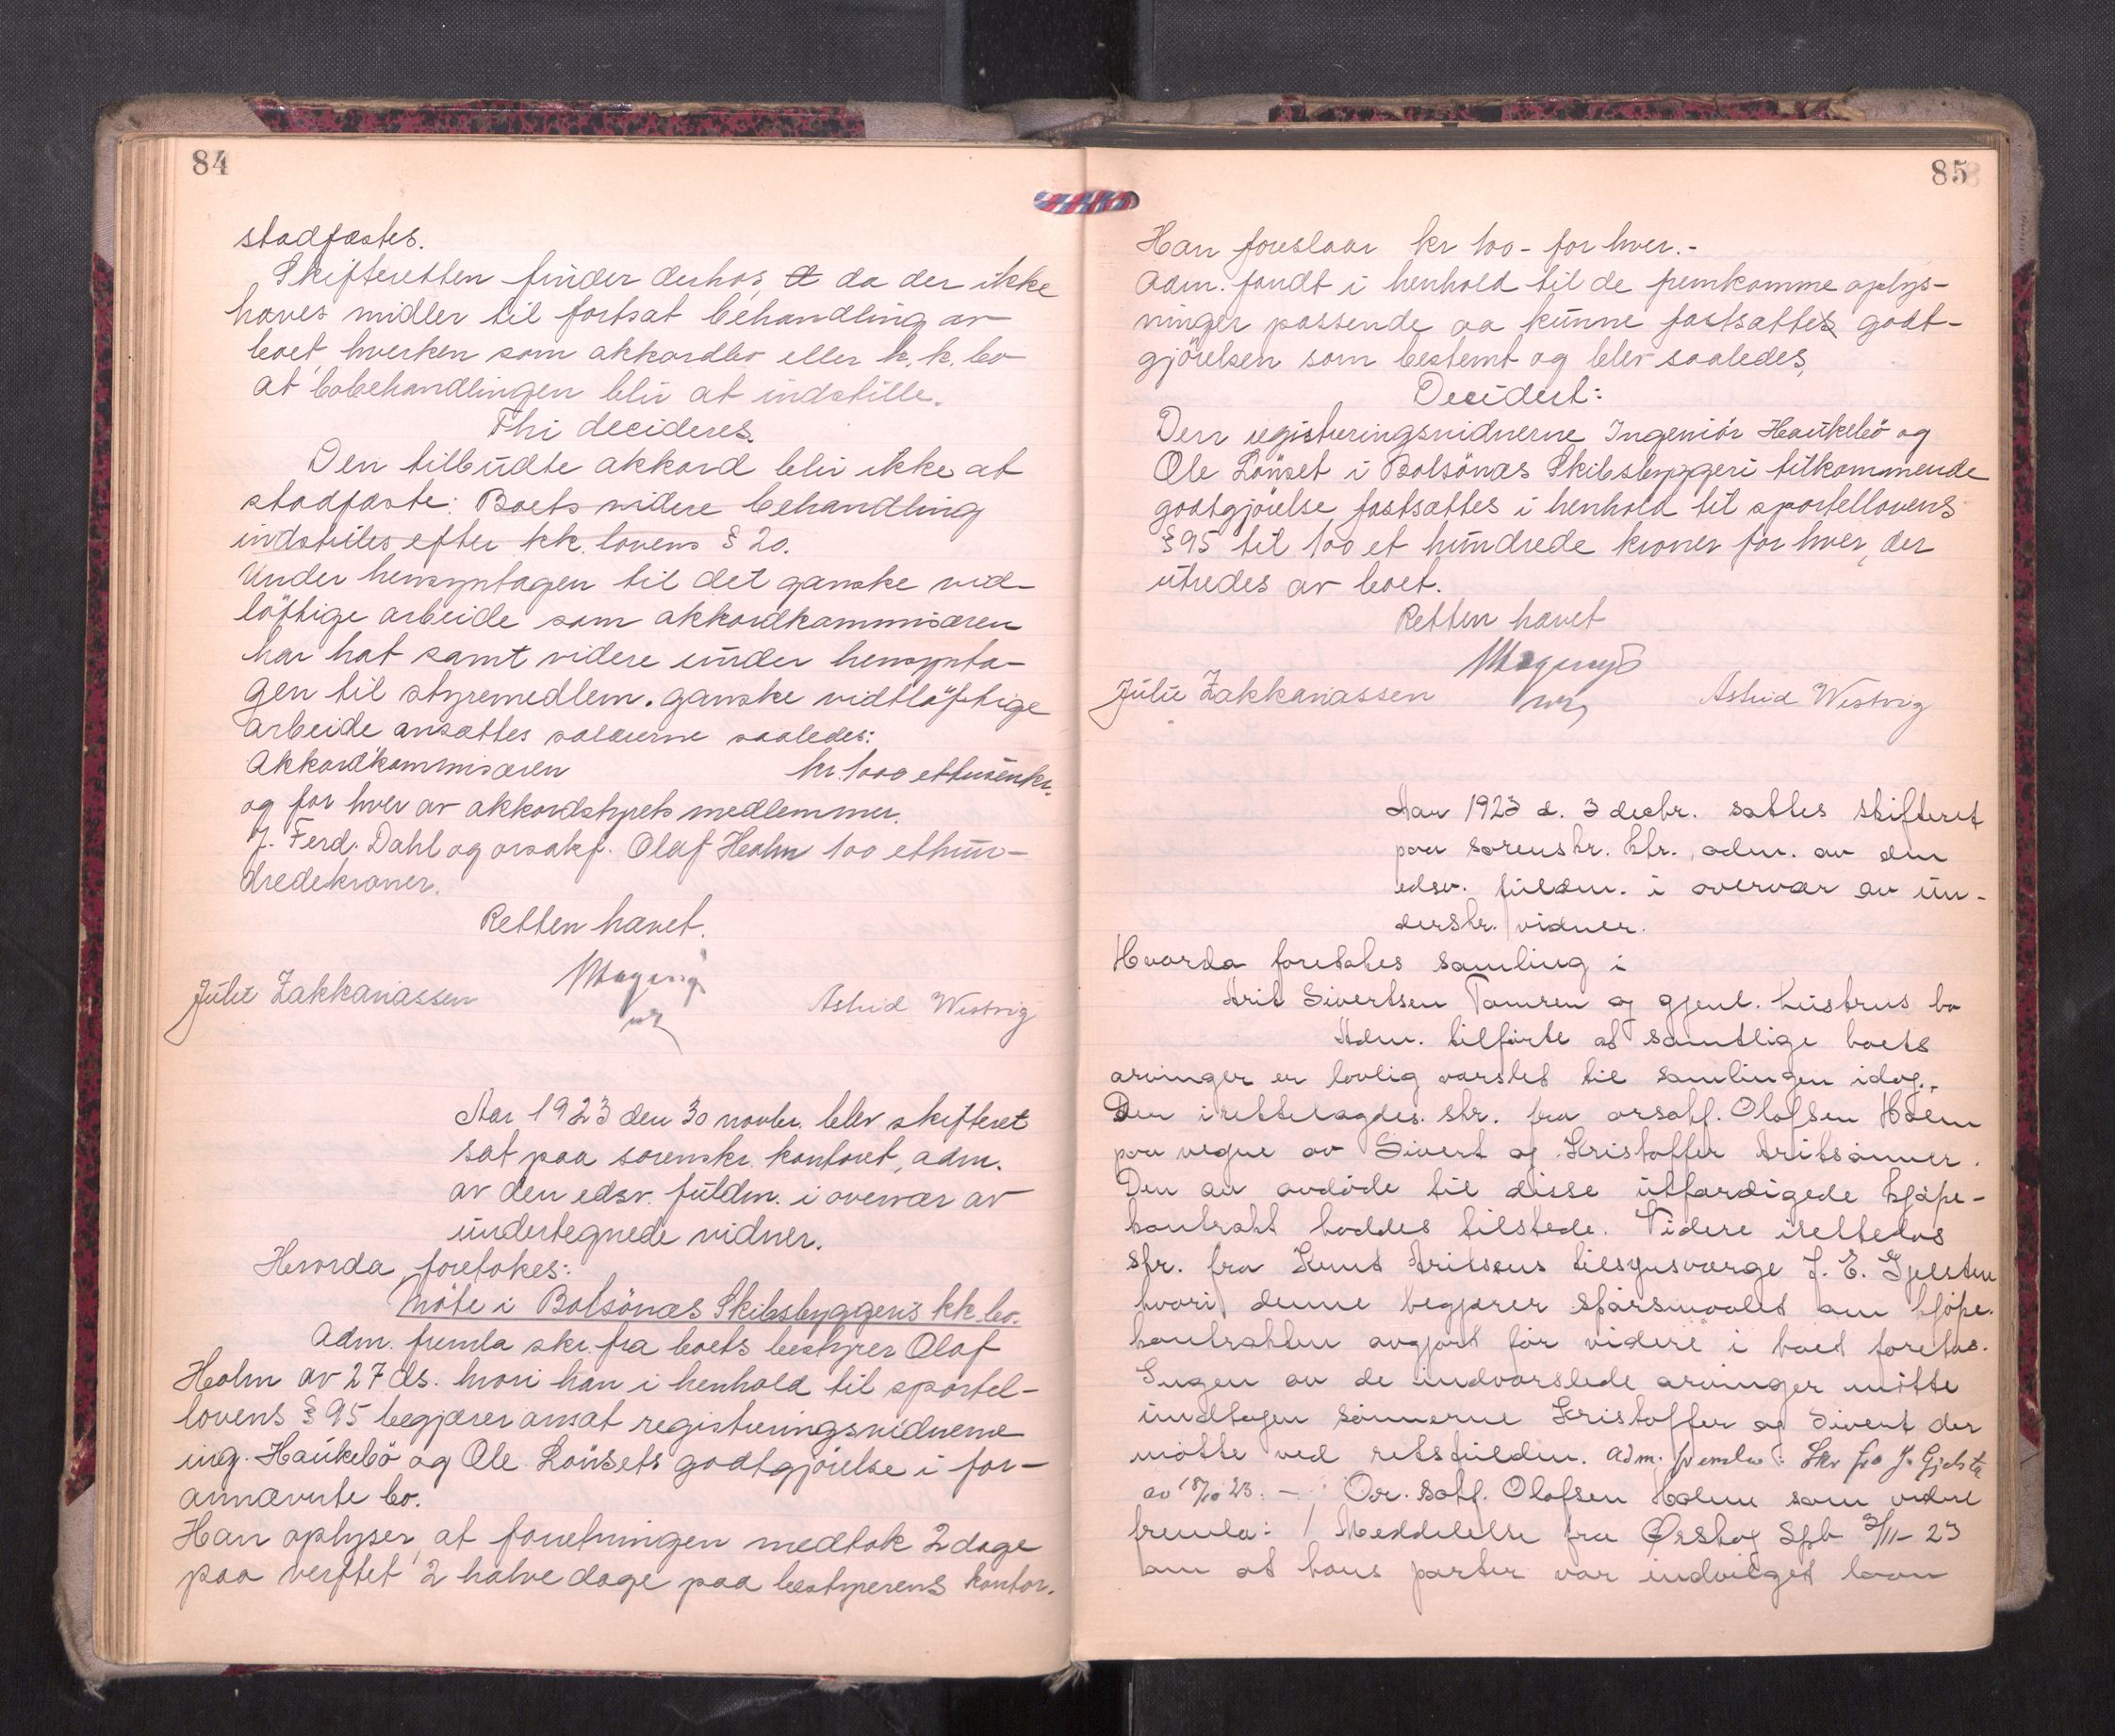 84
stadfæstes.
Skifteretten finder derhos, da der ikke
haves midler til fortsat behandling av
boet, hverken som akkordbo eller k.k. bo
at bobehandlingen blir at indstille.
Thi decideres.
Den tilbudte akkord blir ikke at
stadfæste: Boets videre behandling
indstilles efter kk. lovens § 20.
Under hensyntagen til det ganske vid-
løftige arbeide som akkordkommisæren
har hat samt videre under hensynta-
gen til styremedlem. ganske vidtløftige
arbeide ansættes salærerne saaledes:
Akkordkommisæren kr. 1000 ettusenkr.
og for hver av akkordstyrets medlemmer.
J. Ferd. Dahl og orsakf. Olaf Holm 100 ethun-
dredekroner.
Retten hævet.
Julie Zakkariassen Astrid Westvig
Aar 1923 den 30 novbr. blev skifteret
sat paa sorenskr. kontoret, adm.
av den edsv. fuldm. i overvær av
undertegnede vidner.
Hvorda foretokes:
Møte i Bolsönæs Skibsbyggeris kk. bo.
Adm. fremla skr. fra boets bestyrer Olaf
Holm av 27 ds. hvori han i henhold til sportel-
lovens § 95 begjærer ansat registreringsvidnerne
ing. Haukebö og Ole Lönsets godtgjörelse i for-
annævnte bo.
Han oplyser, at forretningen medtok 2 dage
paa verftet 2 halve dage paa bestyrerens kontor.
85
Han foreslaar kr 100 - for hver. -
Adm. fandt i henhold til de fremkomme oplys-
ninger passende aa kunne fastsættes godt-
gjörelsen som bestemt og blev saaledes,
Decidert:
Den registreringsvidnerne Ingeniör Haukebö og
Ole Lönset i Bolsönæs Skibsbyggeri tilkommende
godtgjörelse fastsættes i henhold til sportellovens
§ 95 til 100 et hundrede kroner for hver, der
utredes av boet.
Retten hævet
Julie Zakkariassen Astrid Westvig
Aar 1923 d. 3 decbr. sattes skifteret
paa sorenskr. ktr., adm. av den
edsv. fuldm. i overvær av un-
derskr. vidner.
Hvorda foretokes samling i
Arit Sivertsen Tomren og gjenl. hustrus bo
Adm. tilførte at samtlige boets
arvinger er lovlig varslet til samlingen idag.
Der irettelagdes skr. fra orsakf. Olafsen Holm
paa vegne av Sivert og Kristoffer Aritsönner.
Den av avdöde til disse utfærdigede kjöpe-
kontrakt haddes tilstede. Videre irettelas
skr. fra Knut Aritsens tilsynsværge J. E. Gjelsten
hvori denne begjærer spörsmaalet om kjöpe-
kontrakten avgjort för videre i boet foretas.
Ingen av de indvarslede arvinger mötte
undtagen sönnerne Kristoffer og Sivert der
mötte ved retsfuldm. Adm. fremla: Skr fra J. Gjelsten
av 18/10 23. - Ov. sakf. Olafsen Holm som videre
fremla: 1 Meddelelse fra Ørskog Spb 3/11-23
om at hans parter var indvilget laan